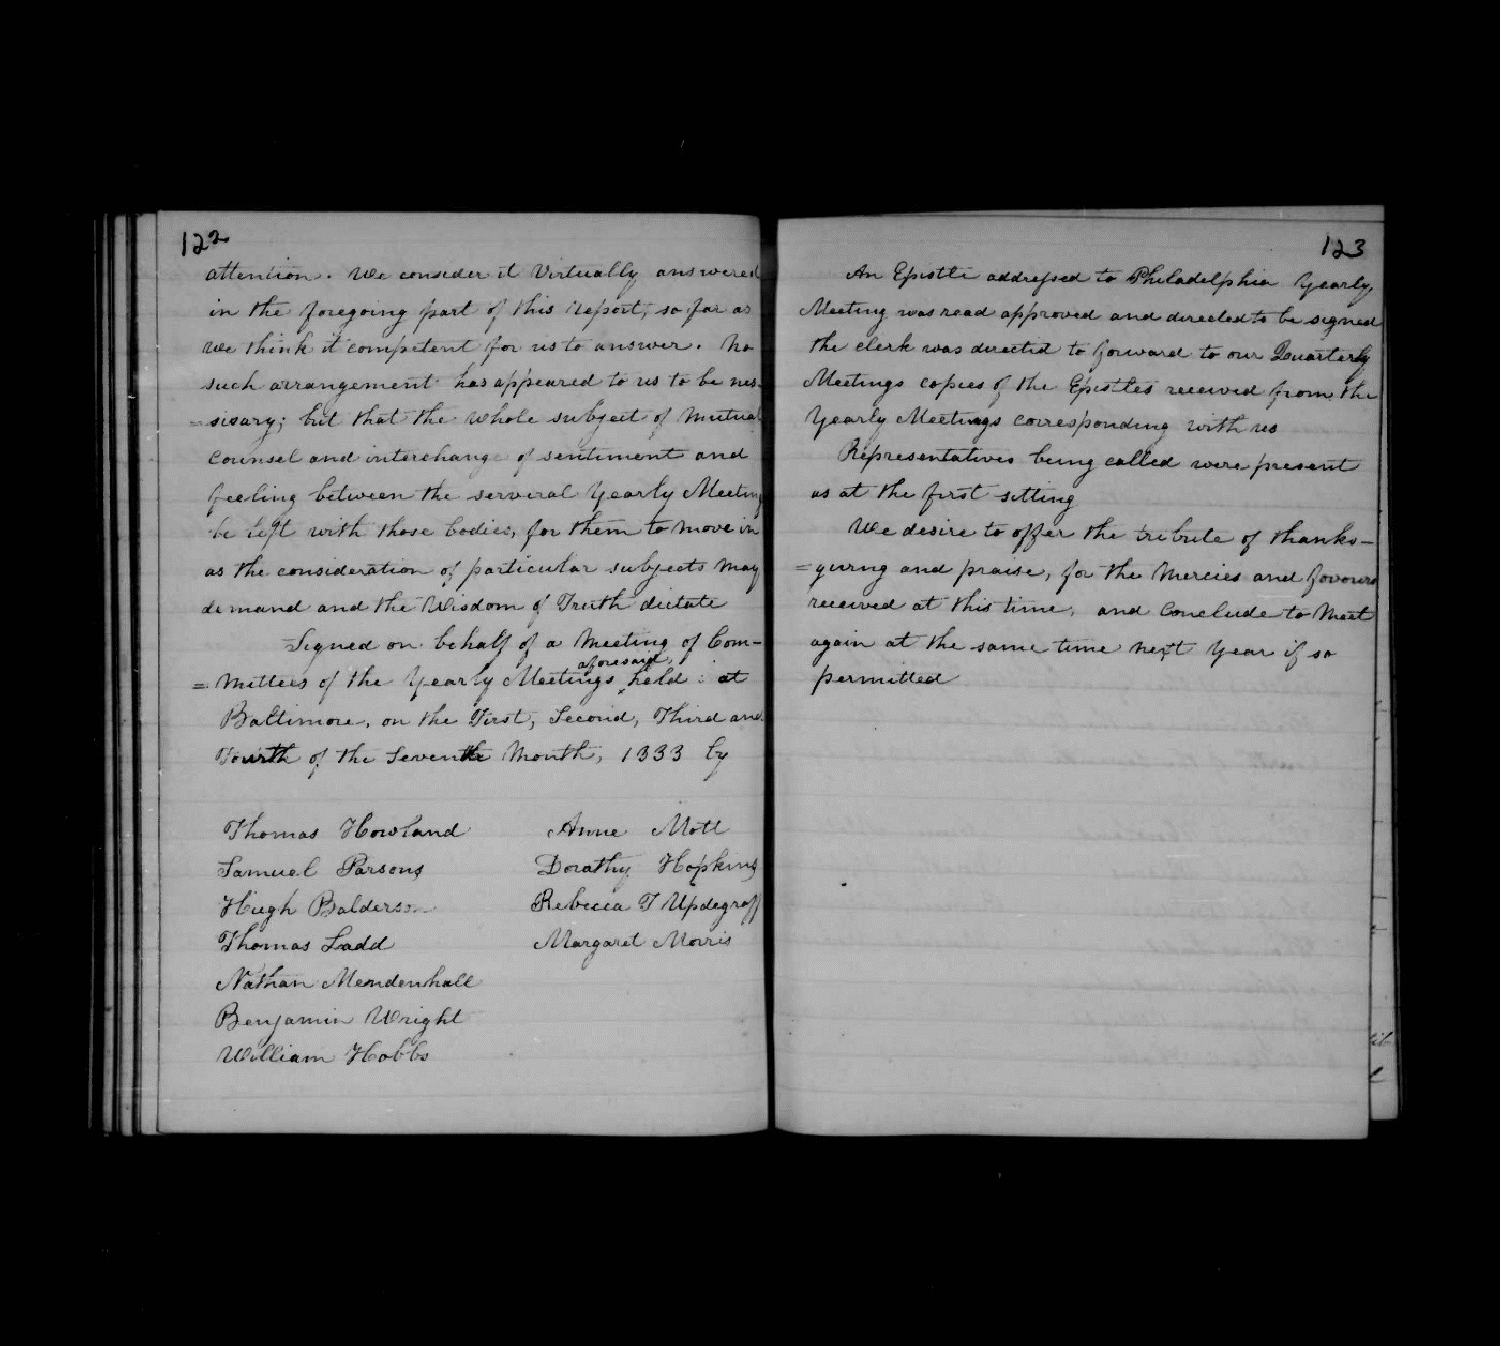 122
attention. We consider it Virtually answered
in the foregoing part of this report, so far as
we think it competent for us to answer. No
such arrangement has appeared to us to be nes-
=sisary; but that the whole subject of Mutual
Counsel and interchange of sentiment and
feeling between the serveral Yearly Meeting
be left with those bodies, for them to move in
as the consideration of particular subjects may
demand and the Wisdom of Truth dictate
Signed on behalf of a Meeting of Com-
=mittees of the Yearly Meetings aforesaid, held at
Baltimore, on the First, Second, Third and
Fourth of the Seventh Month, 1833 by
Thomas Howland Anne Mott
Samuel Parsons Dorathy Hopkins
Hugh Balderson Rebecca T Updegraff
Thomas Ladd Margaret Morris
Nathan Mendenhall
Benjamin Wright
William Hobbs
123
An Epistle addressed to Philadelphia Yearly
Meeting was read approved and directed to be signed
the clerk was directed to forward to our Quarterly
Meetings copies of the Epistles received from the
Yearly Meetings corresponding with us
Representatives being called were present
as at the first sitting
We desire to offer the tribute of thanks-
=giving and praise, for the Mercies and favours
received at this time, and Conclude to Meet
again at the same time next Year if so
permitted